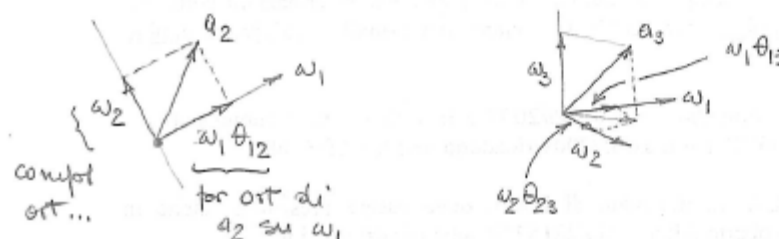 a₂
ω₁
ω₂
ω₁θ₁₂
{ compl
ort...
por ort di
a₂ su ω₁
a₃
ω₁θ₁₃
ω₃
ω₁
ω₂
ω₂θ₂₃